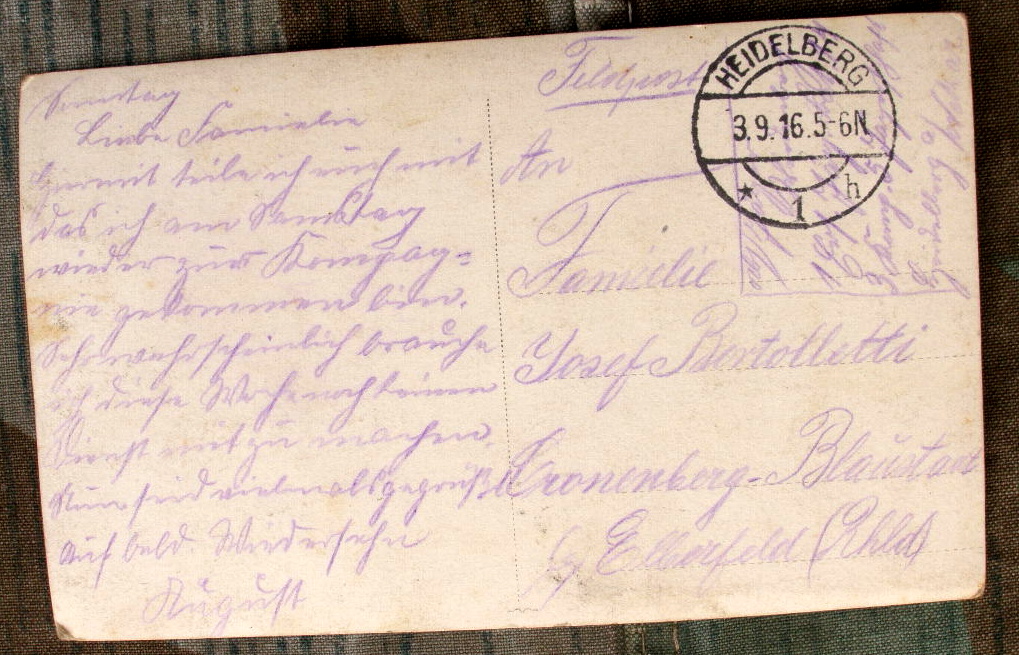 Sonntag
Liebe Familie
Hiermit teile ich euch mit
das ich am Samstag
wieder zur Kompag=
nie gekommen bin.
Sehr wahrscheinlich brauche
ich diese Woche noch keinen
Dienst mit zu machen.
Nun seid vielmals gegrüßt
Auf bald. Wiedersehn
August
Feldpost
An
Familie
Josef Bertolletti
Cronenberg-Blaustadt
b/ Elberfeld (Rhld)
HEIDELBERG
3.9.16.5-6N
* 1 h
Heidelberg